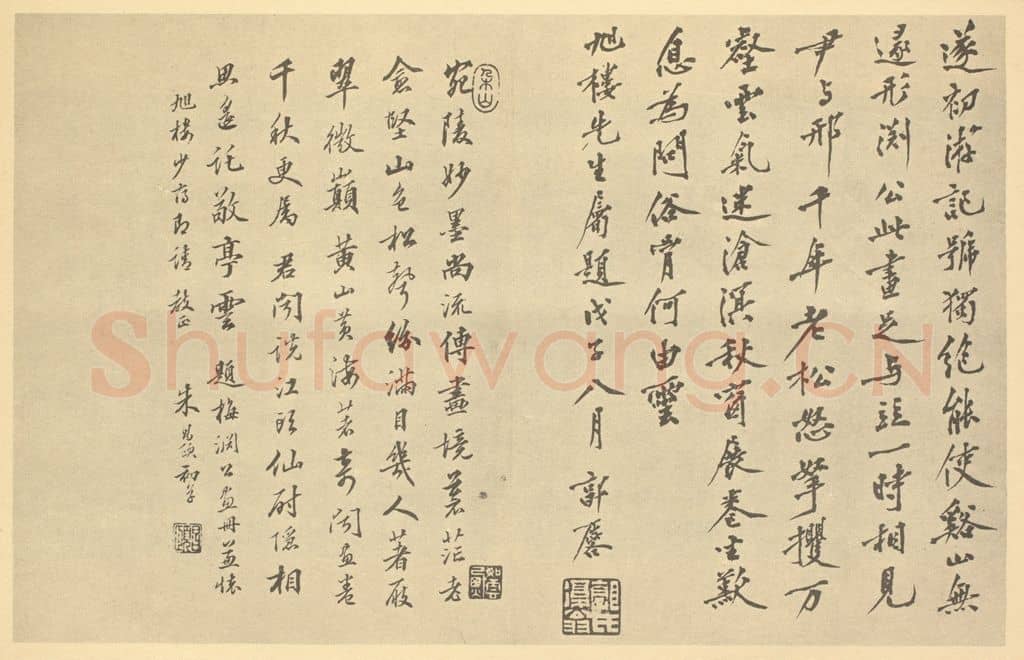 遂初游記號獨絶能使谿山無
遯形渊公此畫足与竝一時相見
尹与邢千年老松怒拏攫万
壑雲氣迷滄溟秋窗展卷坐歎
息為問俗胄何由靈
旭樓先生屬題戊子八月郭麐
宛陵妙墨尚流傳畫境蒼茫老
愈堅山色松聲紛滿目幾人著屐
翠微巔黄山黄海昔奇聞畫卷
千秋更屬君聞説江頭仙尉隱相
思遥託敬亭雲題梅淵公畫冊兼懷
旭樓少府即請教正
朱
Shufawang.CN